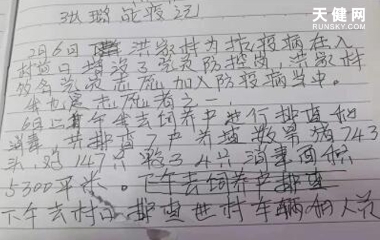 天健网
www.runsky.com
张璐战疫记
2月6日 洪家村为抗疫病在入
村路口增设了3处防控岗,洪家村
饮名党员志愿加入防疫病当中。
也是志愿者之一,
6日上午去饲养户进行排查和
消毒,共排查了7户养殖数量猪743
头,鸡147只,散34只消毒面积
5300平米。下午去饲养户排查
下午去村口排查进村车辆和人员